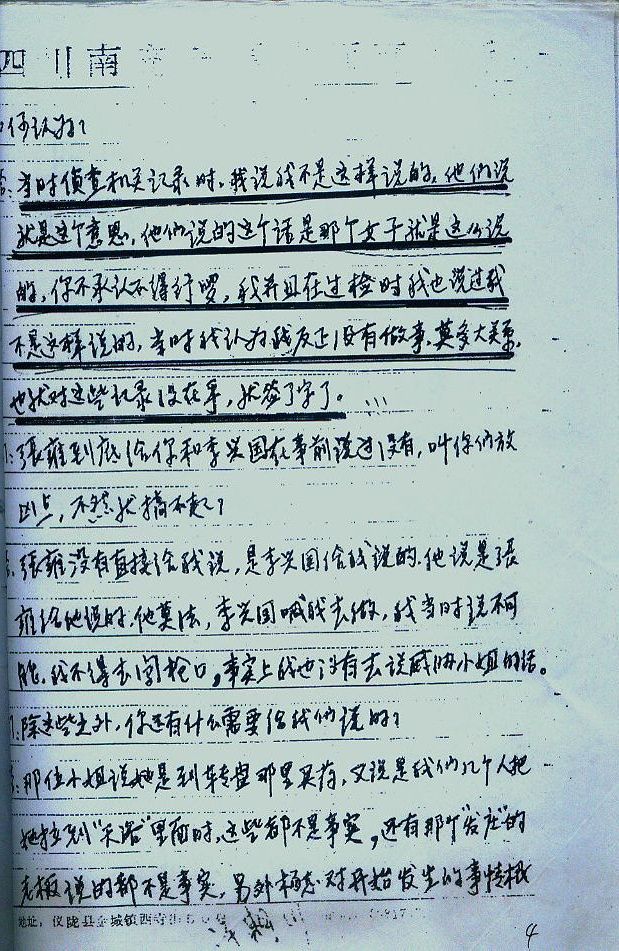 四川南
何认为?
答:当时侦查机关记录时,我说我不是这样说的,他们说
就是这个意思,他们说的这个话是那个女子就是这么说
的,你不承认不得行啰,我并且在过检时我也说过我
不是这样说的,当时我认为我反正没有做事,莫多大关系,
也就对这些记录没在乎,就签了字了。
问:张雍到底给你和李兴国在事前说过没有,叫你们放
凶点,不然就搞不起?
答:张雍没有直接给我说,是李兴国给我说的,他说是张
雍给他说的,他莫法,李兴国喊我去做,我当时说不可
能,我不得去闯枪口。事实上我也没有去说威胁小姐的话。
问:除这些之外,你还有什么需要给我们说的?
答:那位小姐说她是到车转盘那里买药,又说是我们几个人把
她拉到"天浴"里面时,这些都不是事实,还有那个"发庄"的
老板说的都不是事实,另外 对开始发生的事情根
地址:仪陇县金城镇西寺街
4